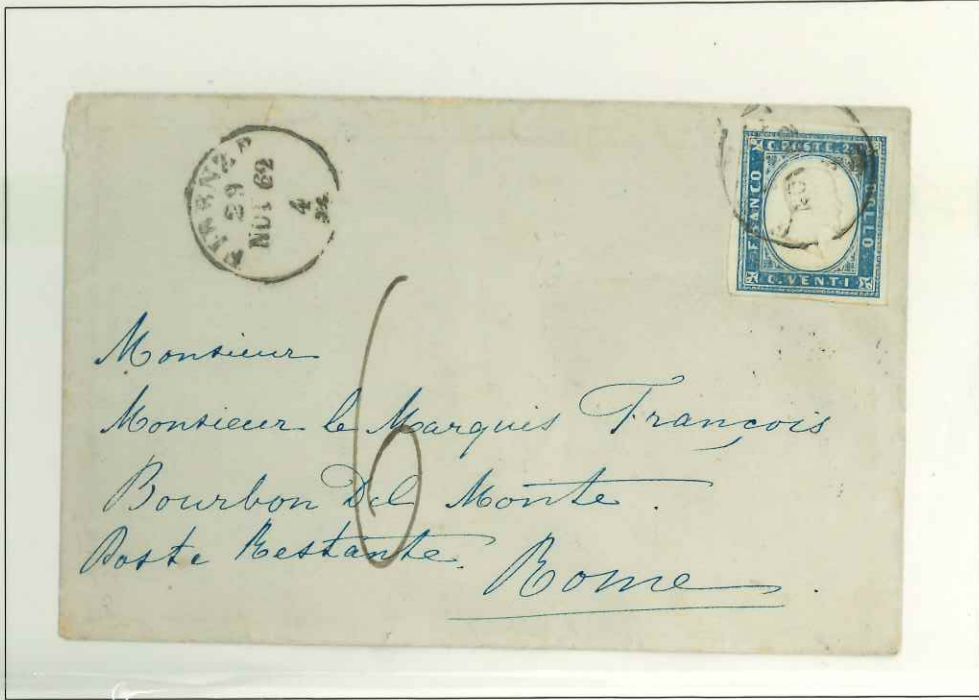 FIRENZE
29
NOV 62
4
C. POSTE 20
FRANCO
BOLLO
C. VENTI
6
Monsieur
Monsieur le Marquis François
Bourbon Del Monte
Poste Restante.
Rome.